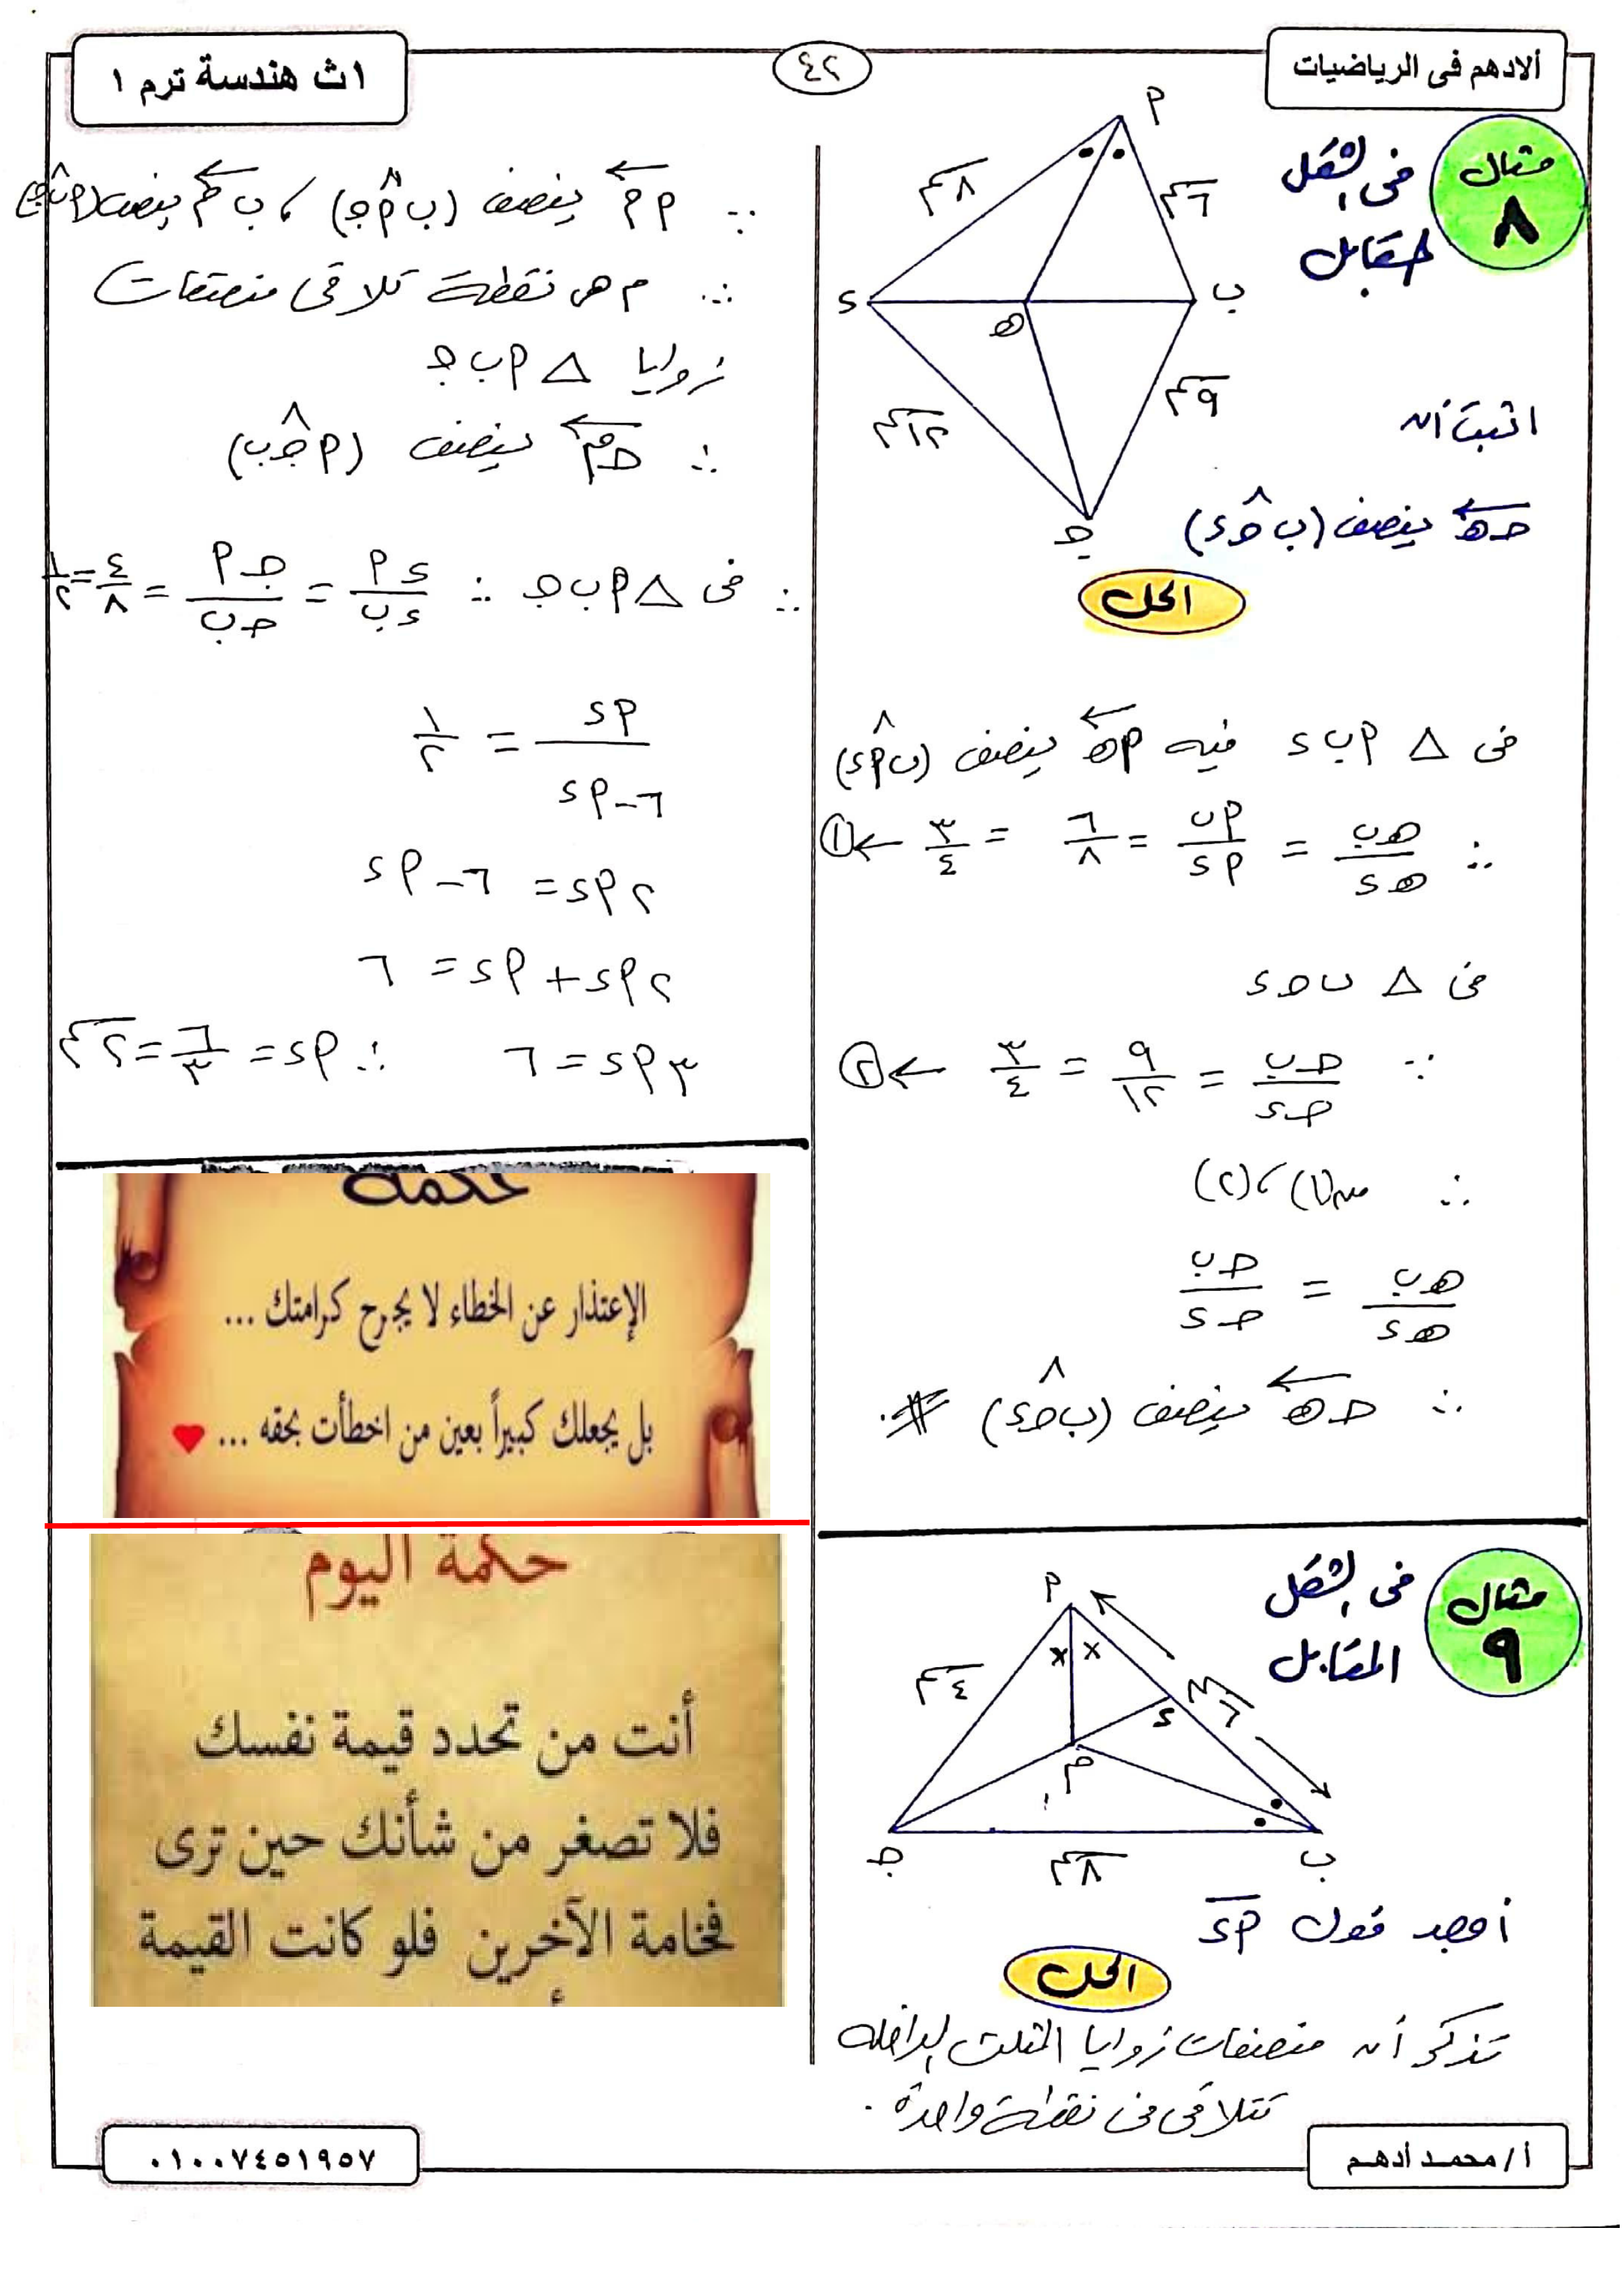 ألادهم فى الرياضيات
٤٢
١ث هندسة ترم ١
مثال ٨
فى الشكل
المقابل
م
٨ سم
٦ سم
ء
ب
هـ
٩ سم
١٢ سم
جـ
اثبت أن
جـ هـ ينصف (ب جـ ء)
الحل
فى △ م ب ء فيه م هـ ينصف (ب م ء)
∴ هـ ب / هـ ء = م ب / م ء = ٦/٨ = ٣/٤ ← ①
فى △ ب جـ ء
∵ جـ ب / جـ ء = ٩/١٢ = ٣/٤ ← ②
∴ من (١) ، (٢)
هـ ب / هـ ء = جـ ب / جـ ء
∴ جـ هـ ينصف (ب جـ ء) #
مثال ٩
فى الشكل
المقابل
٤ سم
٦ سم
ء
م
جـ
ب
٨ سم
أوجد طول أ ء
الحل
تذكر أن منصفات زوايا المثلث الداخلة
تتلاقى فى نقطة واحدة .
∵ أ م ينصف (ب أ جـ) ، ب م ينصف (أ ب جـ)
∴ م هى نقطة تلاقى منصفات
زوايا △ أ ب جـ
∴ جـ م ينصف (أ جـ ب)
∴ فى △ أ ب جـ ∴ ء أ / ء ب = جـ أ / جـ ب = ٤/٨ = ١/٢
أ ء / ٦ - أ ء = ١/٢
٢ أ ء = ٦ - أ ء
٢ أ ء + أ ء = ٦
٣ أ ء = ٦ ∴ أ ء = ٦/٣ = ٢ سم
حكمة
الإعتذار عن الخطاء لا يجرح كرامتك ...
بل يجعلك كبيراً بعين من اخطأت بحقه ... ❤
حكمة اليوم
أنت من تحدد قيمة نفسك
فلا تصغر من شأنك حين ترى
فخامة الآخرين فلو كانت القيمة
أ / محمـد أدهـم
٠١٠٠٧٤٥١٩٥٧